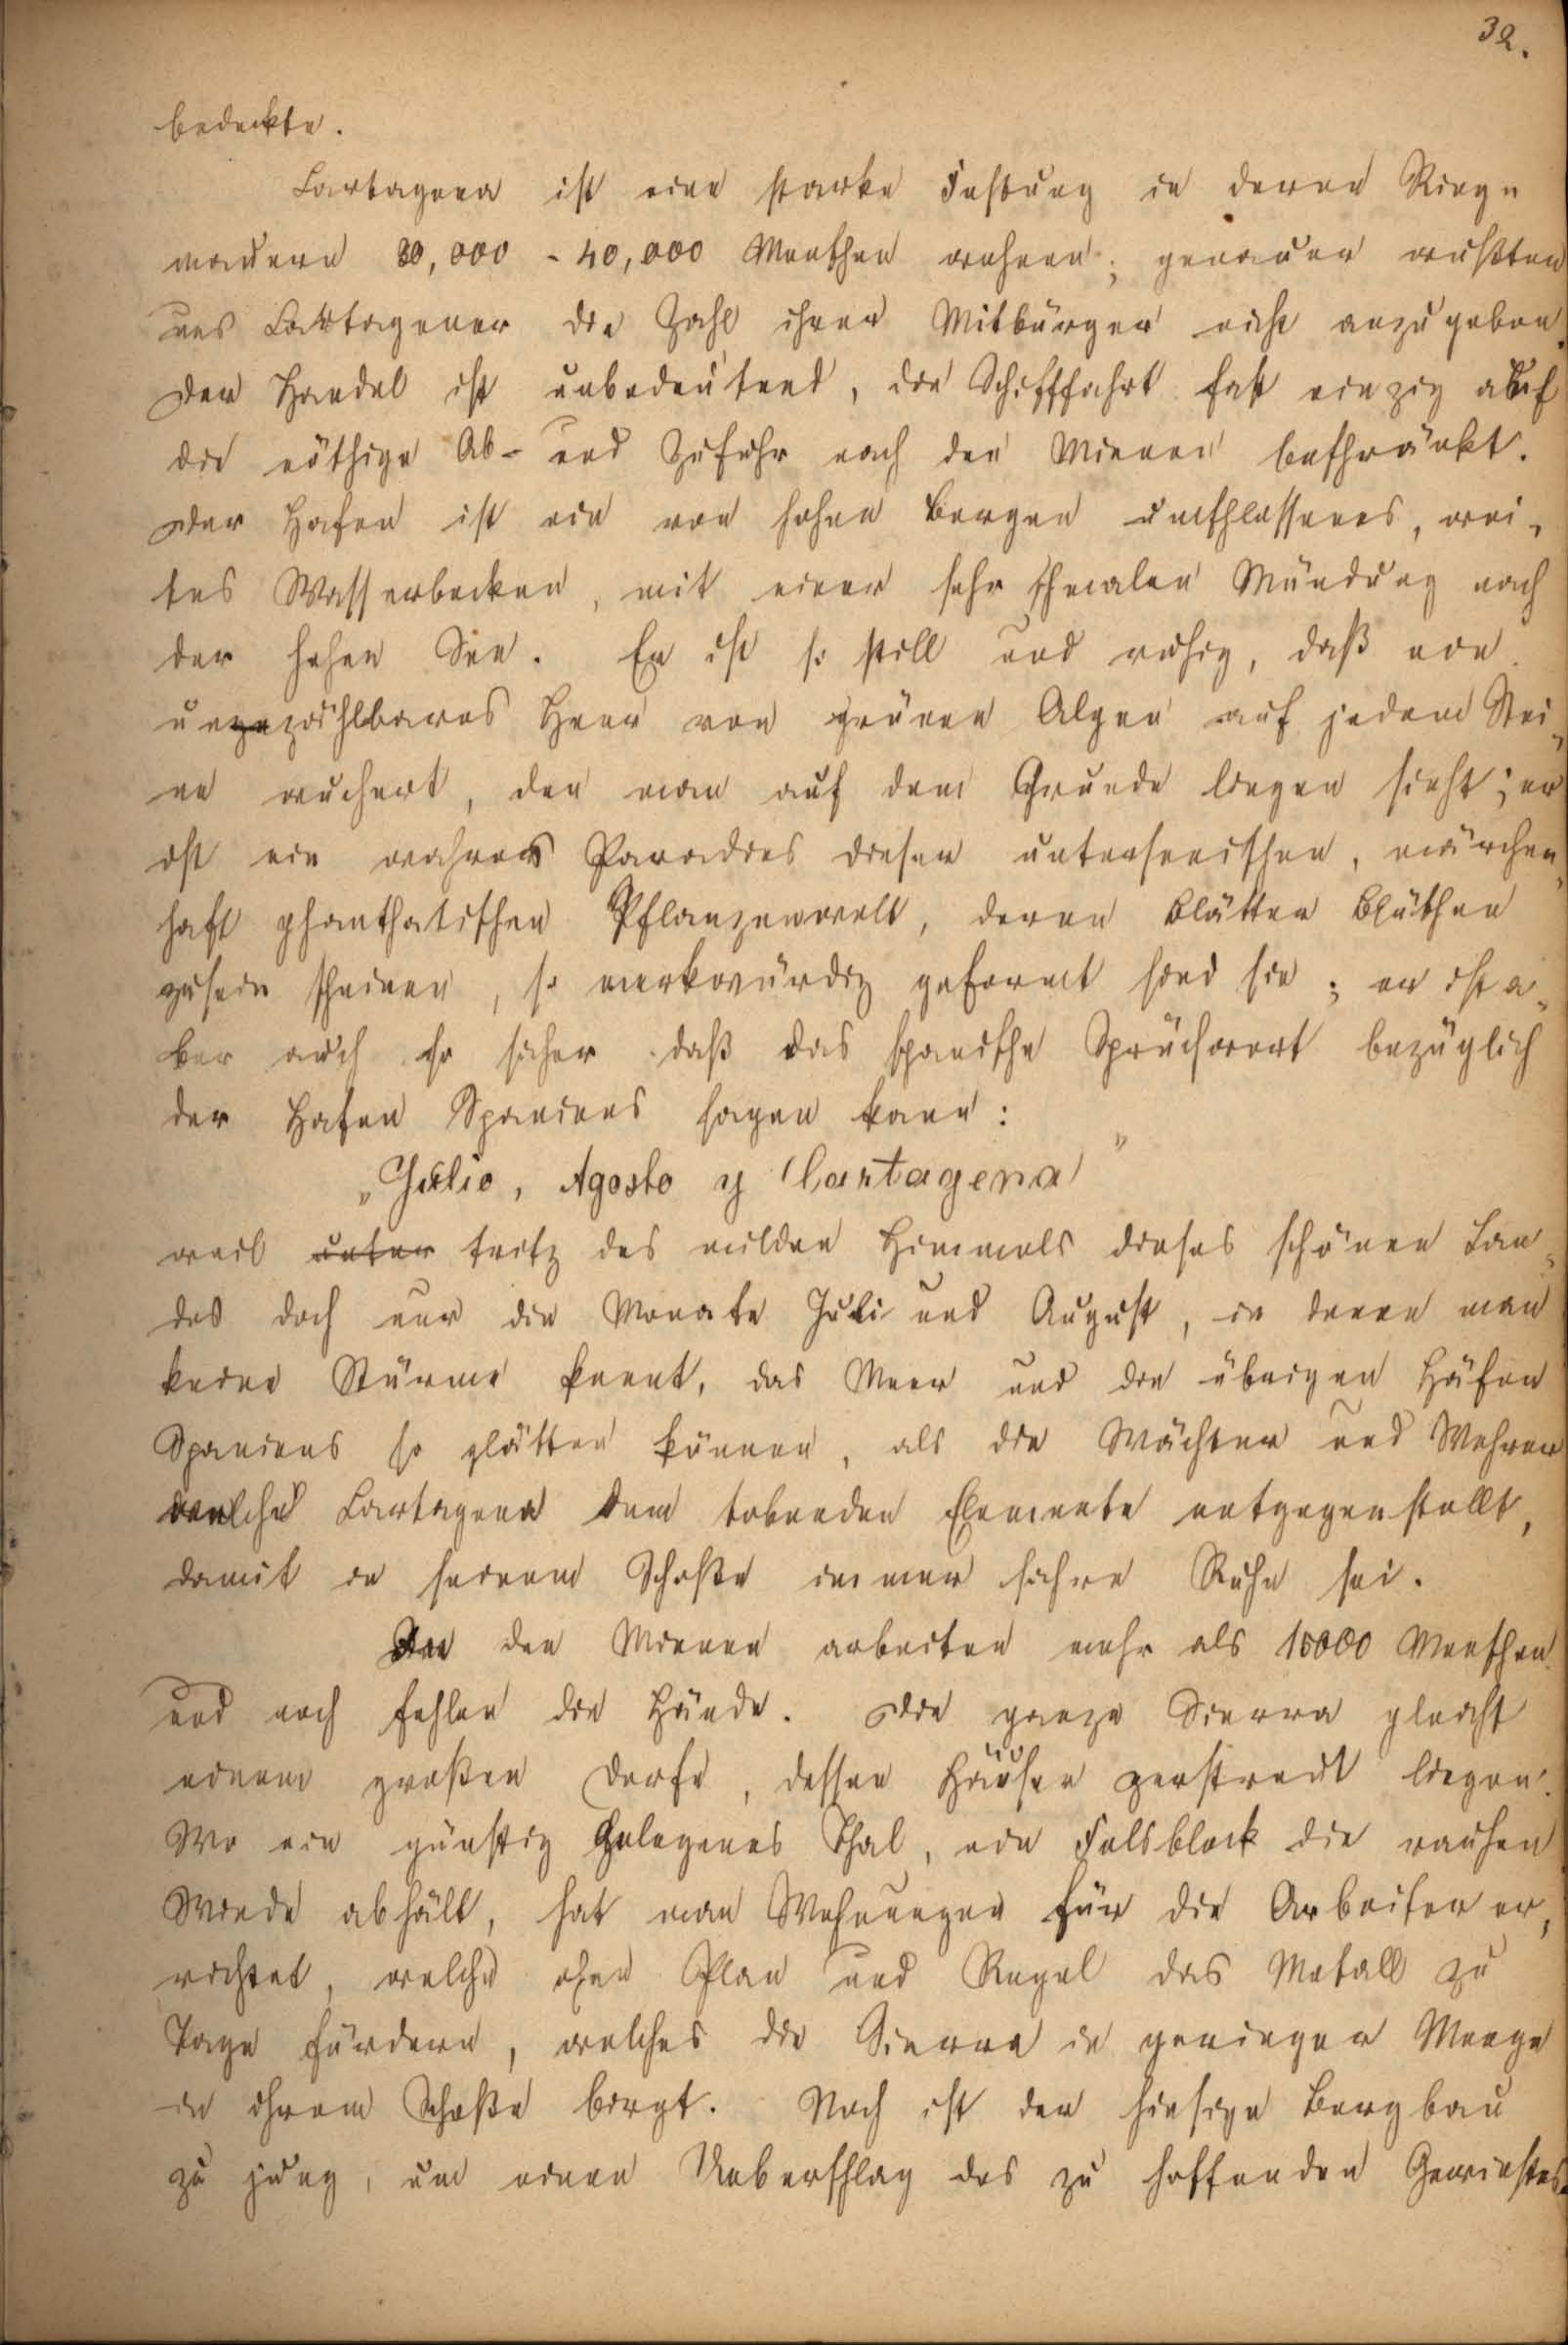 32.
bedeckte.
Cartagena ist eine starke Festung in deren Ring-
mauern 30,000 - 40,000 Menschen wohnen; genauer wußten
uns Cartagener die Zahl ihrer Mitbürger nicht anzugeben.
Der Handel ist unbedeutend, die Schifffahrt fast einzig auf
die nöthige Ab- und Zufuhr nach den Minen beschränkt.
Der Hafen ist ein von hohen Bergen umschlossenes, wei-
tes Wasserbecken, mit einer sehr schmalen Mündung nach
der hohen See. Er ist so still und ruhig, daß ein
unzählbares Heer von grünen Algen auf jedem Stei-
ne wuchert, den man auf dem Grunde liegen sieht; er
ist ein wahres Paradies dieser unterseeischen, märchen-
haft phanthatischen Pflanzenwelt, deren Blätter Blüthen
zusein scheinen, so merkwürdig geformt sind sie; er ist a-
ber auch so sicher daß das spanische Sprüchwort bezüglich
der Hafen Spaniens sagen kann:
„Julio, Agosto y Cartagena"
weil unter trotz des milden Himmels dieses schönen Lan-
des doch nur die Monate Juli und August, in denen man
keine Stürme kennt, das Meer und die übrigen Häfen
Spaniens so glätten können, als die Wächter und Wehren
welche Cartagena dem tobenden Elemente entgegenstellt,
damit in seinem Schoße immer sichre Ruhe sei.
In den Minen arbeiten mehr als 15000 Menschen
und noch fehlen die Hände. Die ganze Sierra gleicht
einem großen Dorfe, dessen Häuser zerstreut liegen.
Wo ein günstig gelegenes Thal, ein Felsblock die rauhen
Winde abhält, hat man Wohnungen für die Arbeiter er-
richtet, welche ohne Plan und Regel das Metall zu
Tage fördern, welches die Sierra in geringer Menge
in ihrem Schoße birgt. Noch ist der hiesige Bergbau
zu jung, um einen Ueberschlag des zu hoffenden Gewinstes